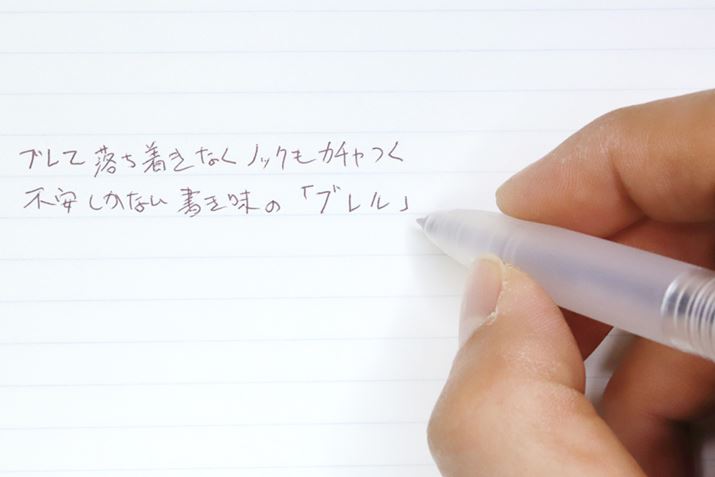 ブレて落ち着きなくノックもガチャつく
不安しかない書き味の「ブレル」